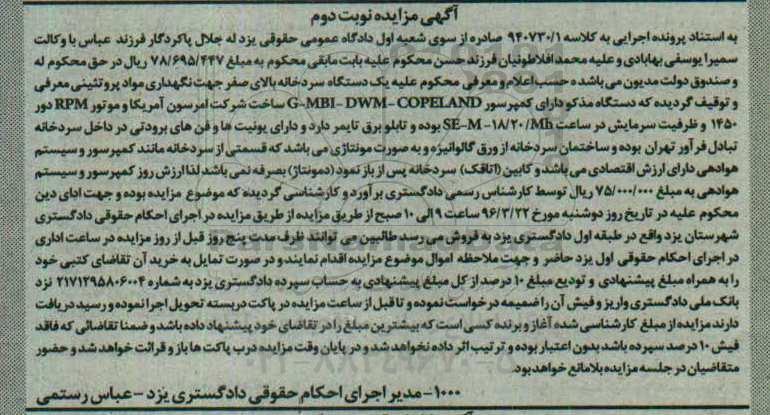 آگهی مزایده نوبت دوم
به استناد پرونده اجرایی به کلاسه ۹۴۰۷۳۰/۱ صادره از سوی شعبه اول دادگاه عمومی حقوقی یزد له جلال پاکردگار فرزند عباس با وکالت
سمیرا یوسفی بهابادی و علیه محمد افلاطونیان فرزند حسن محکوم علیه بابت مابقی محکوم به مبلغ ۷۸/۶۹۵/۴۴۷ ریال در حق محکوم له
و صندوق دولت مدیون می باشد ه حسب اعلام و معرفی محکوم علیه یک دستگاه سردخانه بالای صفر جهت نگهداری مواد پروتئینی معرفی
و توقیف گردید که دستگاه مذکو دارای کمپرسور G-MBI- DWM- COPELAND ساخت شرکت امرسون آمریکا و موتور RPM دور
۱۴۵۰ و ظرفیت سرمایش در ساعت SE-M -۱۸/۲۰/Mh بوده و تابلو برق تایمر دارد و دارای یونیت ها و فن های برودتی در داخل سردخانه
تبادل فرآور تهران بوده و ساختمان سردخانه از ورق گالوانیزه و به صورت مونتاژی می باشد که قسمتی از سردخانه مانند کمپرسور و سیستم
هوادهی دارای ارزش اقتصادی می باشد و کابین (اتاقک) سردخانه پس از باز نمود (دمونتاژ) بصرفه نمی باشد لذا ارزش روز کمپرسور و سیستم
هوادهی به مبلغ ۷۵/۰۰۰/۰۰۰ ریال توسط کارشناس رسمی دادگستری برآورد و کارشناسی گردیده که موضوع مزایده بوده و جهت ادای دین
محکوم علیه در تاریخ روز دوشنبه مورخ ۹۶/۳/۲۲ ساعت ۹ الی ۱۰ صبح از طریق مزایده از طریق مزایده در اجرای احکام حقوقی دادگستری
شهرستان یزد واقع در طبقه اول دادگستری یزد به فروش می رسد طالبین می توانند ظرف مدت پنج روز قبل از روز مزایده در ساعت اداری
در اجرای احکام حقوقی اول یزد حاضر و جهت ملاحظه اموال موضوع مزایده اقدام نمایند و در صورت تمایل به خرید آن تقاضای کتبی خود
را به همراه مبلغ پیشنهادی و تودیع مبلغ ۱۰ درصد از کل مبلغ پیشنهادی به حساب سپرده دادگستری یزد به شماره ۲۱۷۱۲۹۵۸۰۶۰۰۴ نزد
بانک ملی دادگستری واریز و فیش آن را ضمیمه درخواست نموده و تا قبل از ساعت مزایده در پاکت دربسته تحویل اجرا نموده و رسید دریافت
دارند مزایده از مبلغ کارشناسی شده آغاز و برنده کسی است که بیشترین مبلغ را در تقاضای خود پیشنهاد داده باشد و ضمنا تقاضائی که فاقد
فیش ۱۰ درصد سپرده باشد بدون اعتبار بوده و ترتیب اثر داده نخواهد شد و در پایان وقت مزایده درب پاکت ها باز و قرائت خواهد شد و حضور
متقاضیان در جلسه مزایده بلامانع خواهد بود.
۱۰۰۰- مدیر اجرای احکام حقوقی دادگستری یزد - عباس رستمی